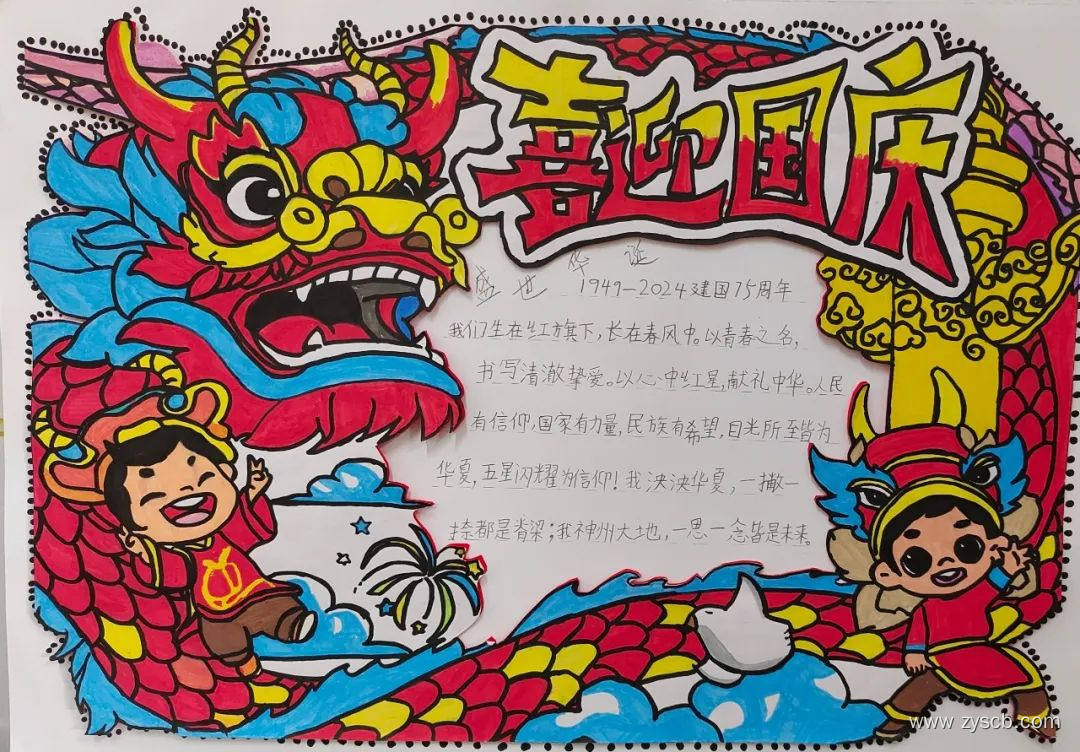 喜迎国庆
盛世华诞
1949-2024建国75周年
我们生在红旗下，长在春风中。以青春之名，
书写清澈挚爱。以心中红星，献礼中华。人民
有信仰，国家有力量，民族有希望，目光所至皆为
华夏，五星闪耀为信仰！我泱泱华夏，一撇一
捺都是脊梁；我神州大地，一思一念皆是未来。
www.zyscb.com